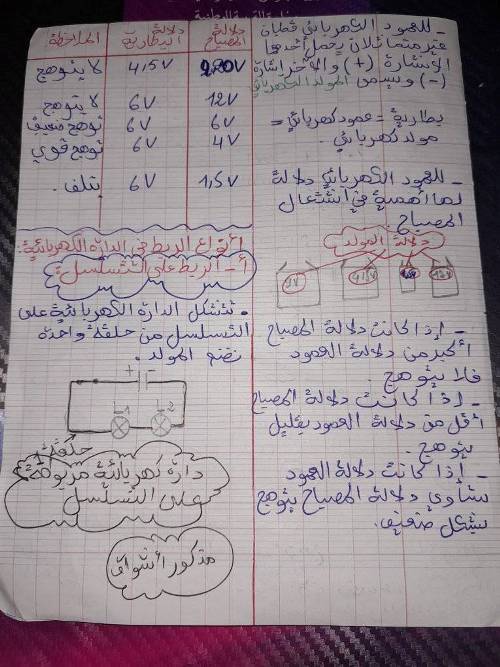 - للعمود الكهربائي قطبان
غير متماثلان يحمل أحدهما
الإشارة (+) والآخر إشارة
(-) ويسمى المولد الكهربائي
بطارية = عمود كهربائي =
مولد كهربائي.
- للعمود الكهربائي دلالة
لها أهمية في اشتعال
المصباح.
دلالة المولد
4,5V
12V
- إذا كانت دلالة المصباح
أكبر من دلالة العمود
فلا يتوهج.
- إذا كانت دلالة المصباح
أقل من دلالة العمود بقليل
يتوهج.
- إذا كانت دلالة العمود
تساوي دلالة المصباح يتوهج
بشكل ضعيف.
دلالة المصباح | دلالة البطارية | الملاحظة
220V | 4,5V | لا يتوهج
12V | 6V | لا يتوهج
6V | 6V | توهج ضعيف
4V | 6V | توهج قوي
1,5V | 6V | يتلف.
أنواع الربط في الدارة الكهربائية:
أ - الربط على التسلسل:
• تتشكل الدارة الكهربائية على
التسلسل من حلقة واحدة
تضم المولد.
+ -
L1 L2
حلقة 1
دارة كهربائية مربوطة
على التسلسل
مذكور أشواق